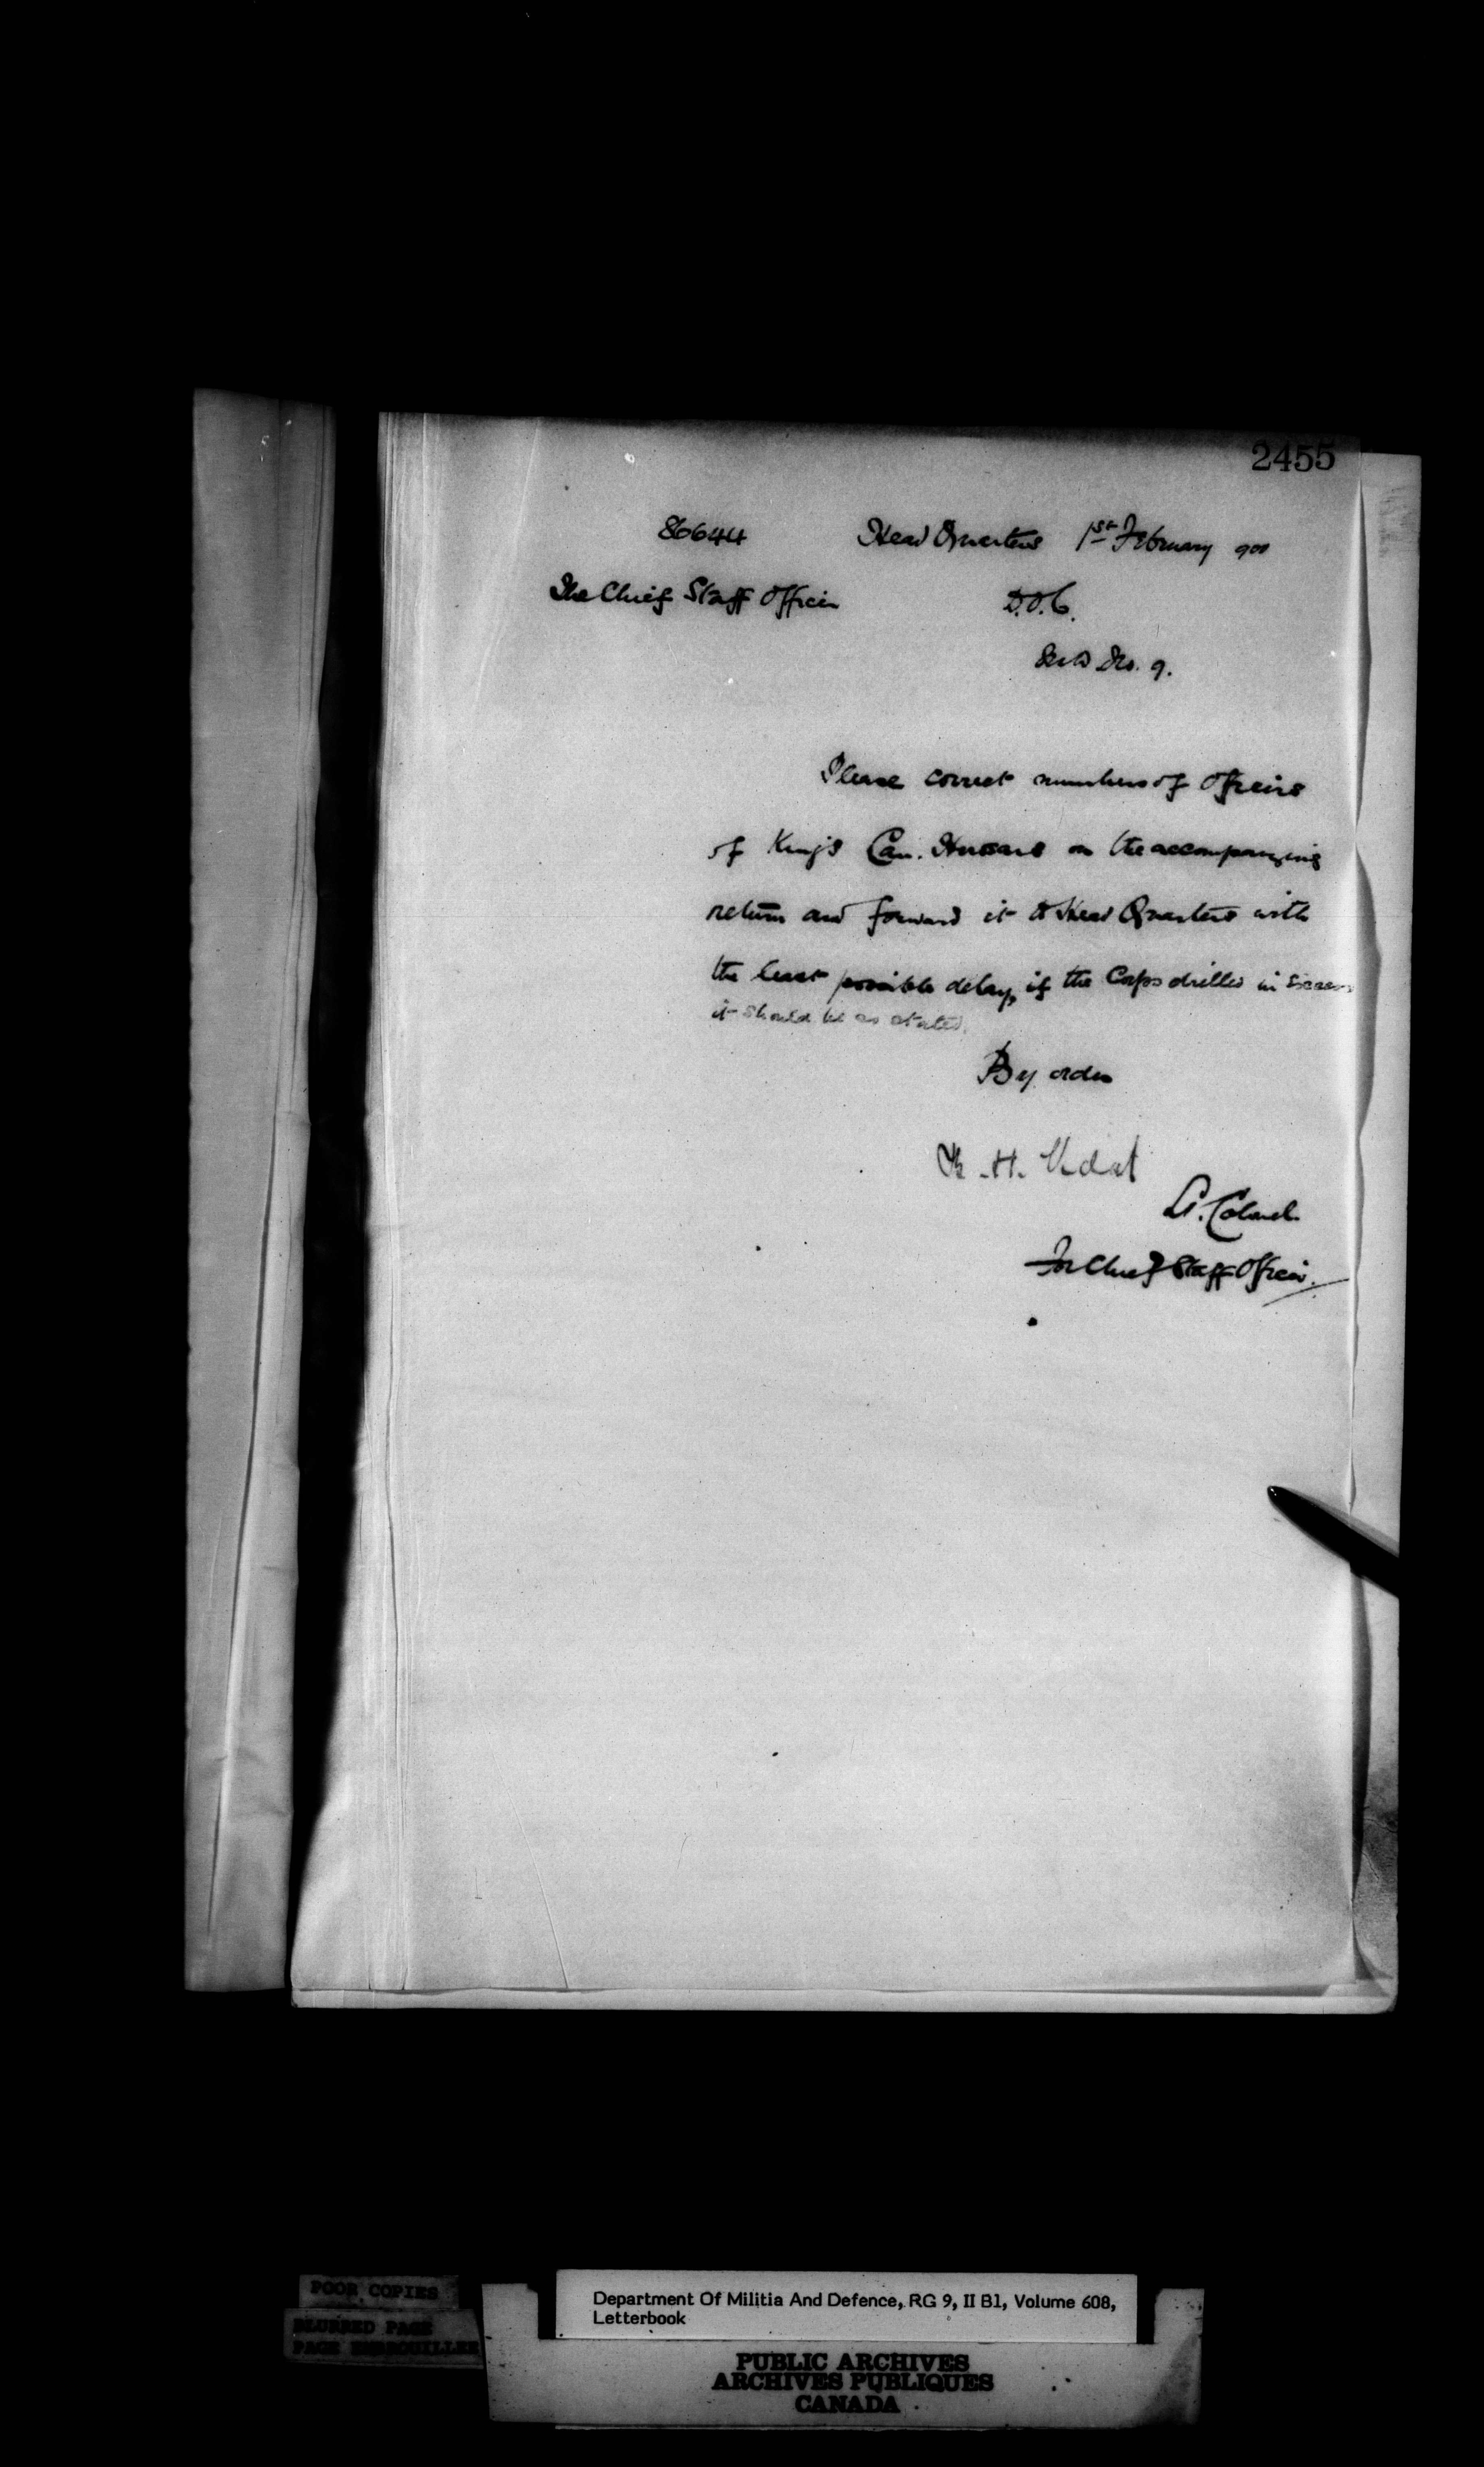 2455
86644 Head Quarters 1st February 900
The Chief Staff Officer D.O.C.
No. 9.
Please correct numbers of Officers
of King's Can. Hussars on the accompanying
return and forward it to Head Quarters with
the least possible delay, if the Corps drilled in
it should be so stated.
By order
H. Vidal
Lt. Colonel
For Chief Staff Officer.
POOR COPIES
BLURRED PAGE
PAGE EMBROUILLEE
Department Of Militia And Defence, RG 9, II B1, Volume 608,
Letterbook
PUBLIC ARCHIVES
ARCHIVES PUBLIQUES
CANADA